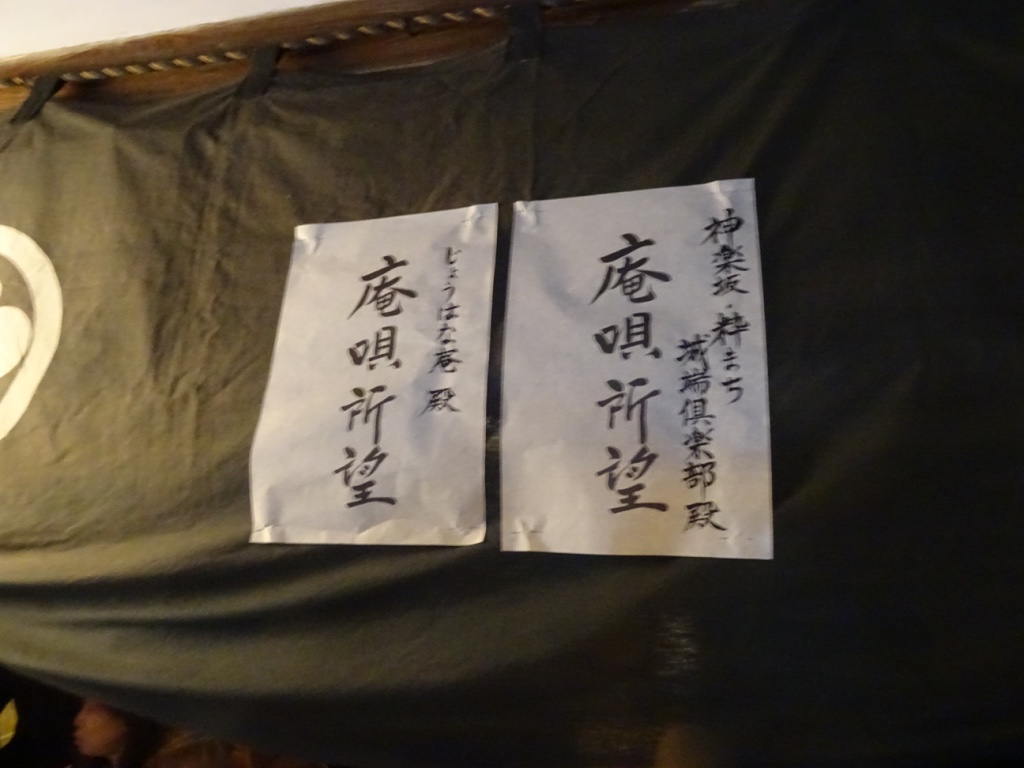 神楽坂・粋まち
城端倶楽部殿
庵唄所望
じょうはな庵殿
庵唄所望